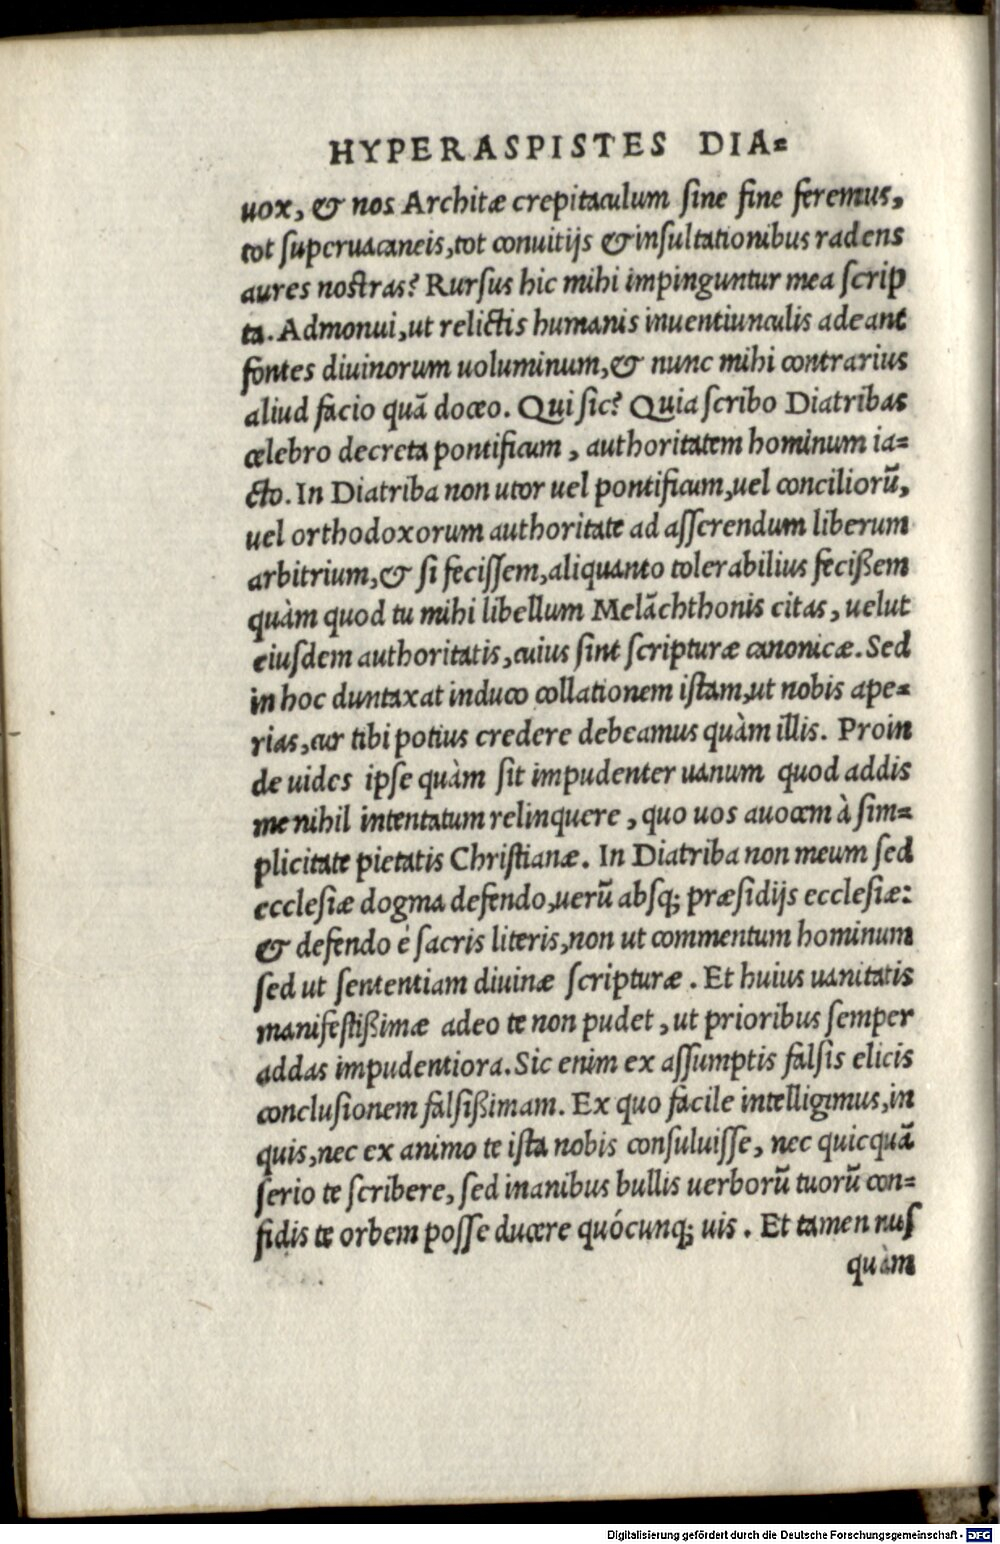 HYPERASPISTES DIA=
uox, & nos Architæ crepitaculum ſine fine feremus,
tot ſuperuacaneis,tot conuitijs & inſultationibus radens
aures nostras? Rurſus hic mihi impinguntur mea ſcrip
ta. Admonui,ut relictis humanis inuentiunculis adeant
fontes diuinorum uoluminum,& nunc mihi contrarius
aliud facio quã doceo. Qui ſic? Quia ſcribo Diatribas
celebro decreta pontificum , authoritatem hominum ia=
cto. In Diatriba non utor uel pontificum,uel concilioru̅,
uel orthodoxorum authoritate ad aſſerendum liberum
arbitrium,& ſi feciſſem,aliquanto tolerabilius fecißem
quàm quod tu mihi libellum Melãchthonis citas, uelut
eiuſdem authoritatis,cuius ſint ſcripturæ canonicæ. Sed
in hoc duntaxat induco collationem iſtam,ut nobis ape=
rias,cur tibi potius credere debeamus quàm illis. Proin
de uides ipſe quàm ſit impudenter uanum quod addis
me nihil intentatum relinquere , quo uos auocem à ſim=
plicitate pietatis Chriſtianæ. In Diatriba non meum ſed
eccleſiæ dogma defendo,ueru̅ abſq; præſidijs eccleſiæ:
& defendo é ſacris literis,non ut commentum hominum
ſed ut ſententiam diuinæ ſcripturæ . Et huius uanitatis
manifeſtißimæ adeo te non pudet , ut prioribus ſemper
addas impudentiora. Sic enim ex aſſumptis falſis elicis
concluſionem falſißimam. Ex quo facile intelligimus,in
quis,nec ex animo te iſta nobis conſuluiſſe, nec quicquã
ſerio te ſcribere, ſed inanibus bullis uerboru̅ tuoru̅ con=
fidis te orbem poſſe ducere quócunq; uis . Et tamen nuſ
quàm
Digitalisierung gefördert durch die Deutsche Forschungsgemeinschaft - DFG